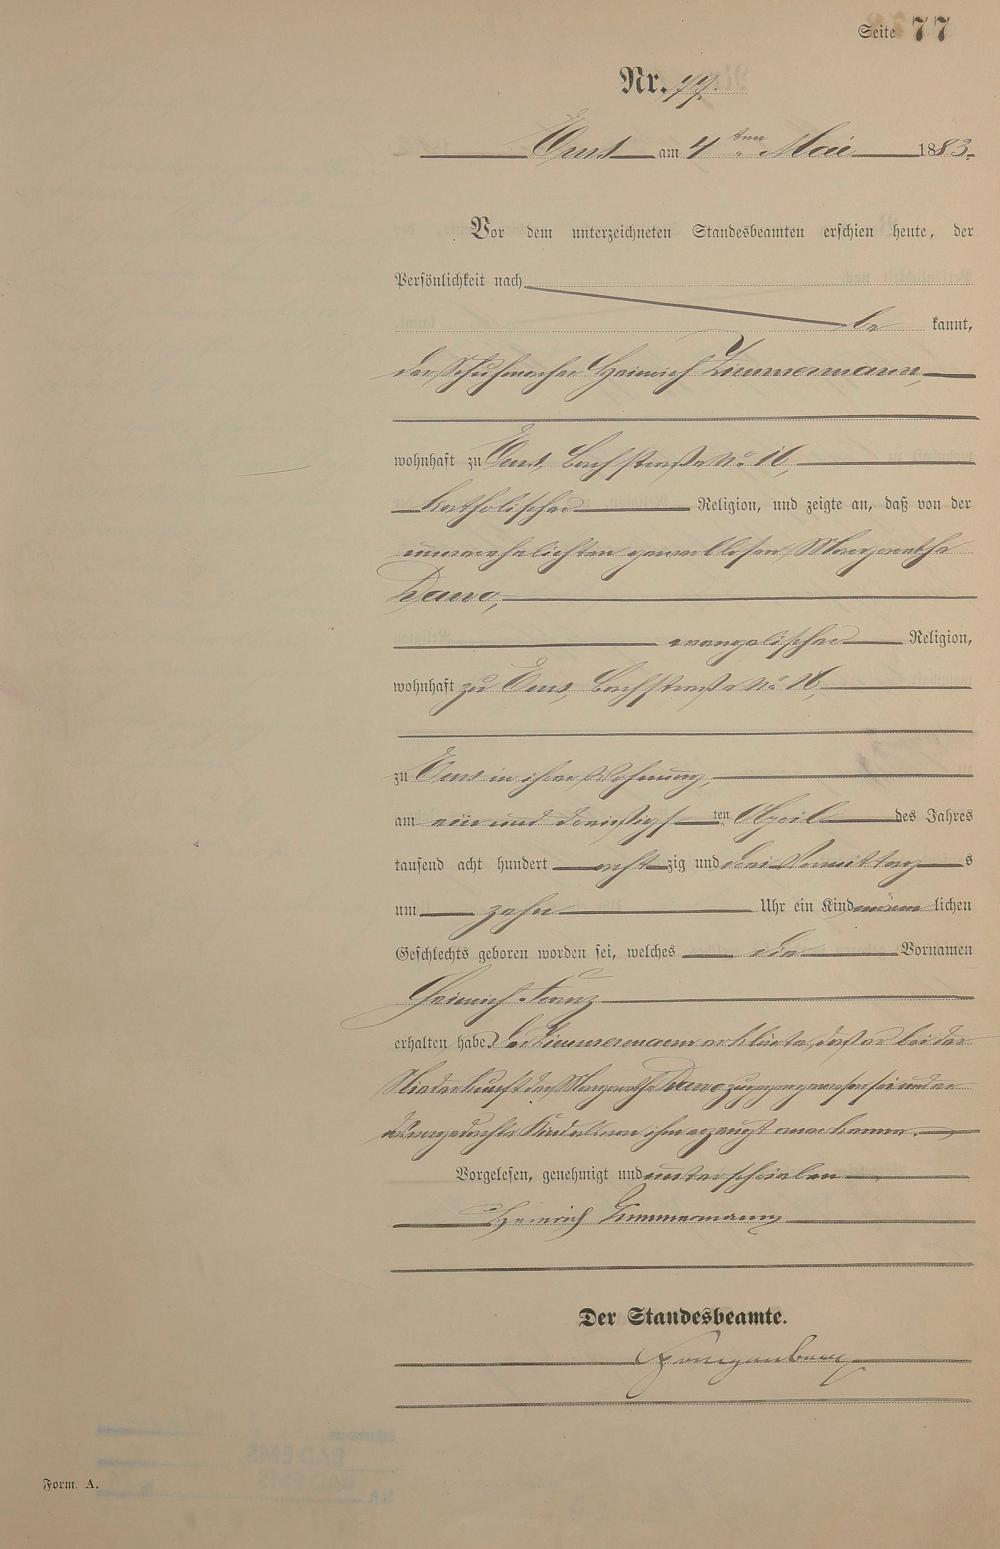 Seite 77
Nr. 77.
Ems am 4ten Mai 1883.
Vor dem unterzeichneten Standesbeamten erschien heute, der
Persönlichkeit nach
be kannt,
der Schuhmacher Heinrich Zimmermann,
wohnhaft zu Ems, Bachstraße No. 16,
katholischer Religion, und zeigte an, daß von der
unverehelichten gewerblosen Margarethe
Dawo,
evangelischer Religion,
wohnhaft zu Ems, Bachstraße No. 16,
zu Ems in ihrer Wohnung,
am ein und dreißigsten April des Jahres
tausend acht hundert acht zig und drei Vormittags
um zehn Uhr ein Kind männlichen
Geschlechts geboren worden sei, welches die Vornamen
Heinrich Franz
erhalten habe. Der Zimmermann erklärte, daß er bei der
Niederkunft der Margarethe Dawo zugegen gewesen sei und er
das vorgedachte Kind als von ihm erzeugt anerkenne.
Vorgelesen, genehmigt und unterschrieben
Heinrich Zimmermann
Der Standesbeamte.
Form. A.
BAD EMS